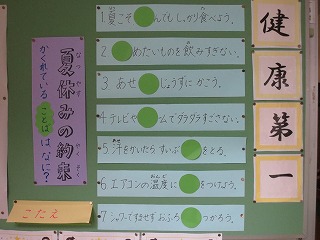 夏休みの約束
なつやす やくそく
かくれていることばはなに？
1.夏こそ んでもしっかり食べよう。
2. めたいものを飲みすぎない。
3. あせ じょうずにかこう。
4.テレビや ームでダラダラすごさない。
5.汗をかいたらすいぶ をとる。
6.エアコンの温度に をつけよう。
おんど
7.シャワーですませずおふろ つかろう。
こたえ
健康第一